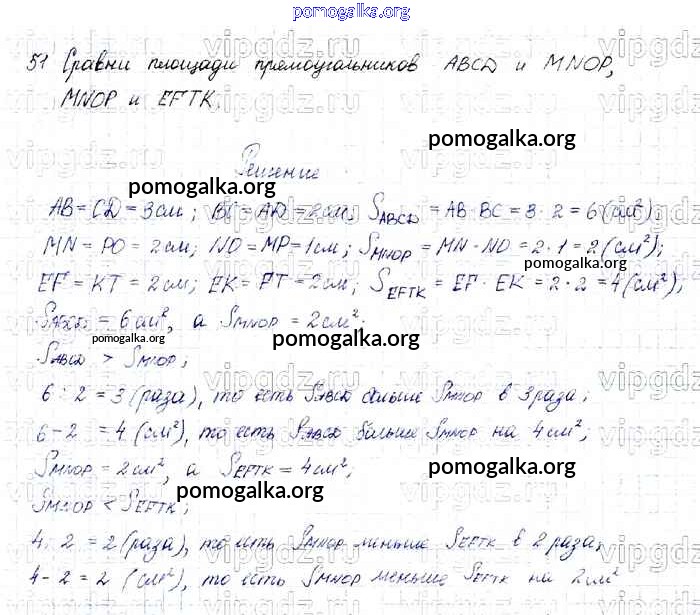 pomogalka.org
51 Сравни площади прямоугольников ABCD и MNOP,
MNOP и EFTK.
pomogalka.org
Решение
pomogalka.org
AB = CD = 3 см; BC = AD = 2 см. S ABCD = AB · BC = 3 · 2 = 6 (см²);
MN = PO = 2 см; NO = MP = 1 см; S MNOP = MN · NO = 2 · 1 = 2 (см²);
pomogalka.org
EF = KT = 2 см; EK = FT = 2 см; S EFTK = EF · EK = 2 · 2 = 4 (см²);
S ABCD = 6 см², а S MNOP = 2 см².
pomogalka.org
pomogalka.org
S ABCD > S MNOP;
6 : 2 = 3 (раза), то есть S ABCD больше S MNOP в 3 раза;
6 - 2 = 4 (см²), то есть S ABCD больше S MNOP на 4 см²;
S MNOP = 2 см², а S EFTK = 4 см²;
pomogalka.org
pomogalka.org
S MNOP < S EFTK;
4 : 2 = 2 (раза), то есть S MNOP меньше S EFTK в 2 раза;
4 - 2 = 2 (см²), то есть S MNOP меньше S EFTK на 2 см²
vipgdz.ru